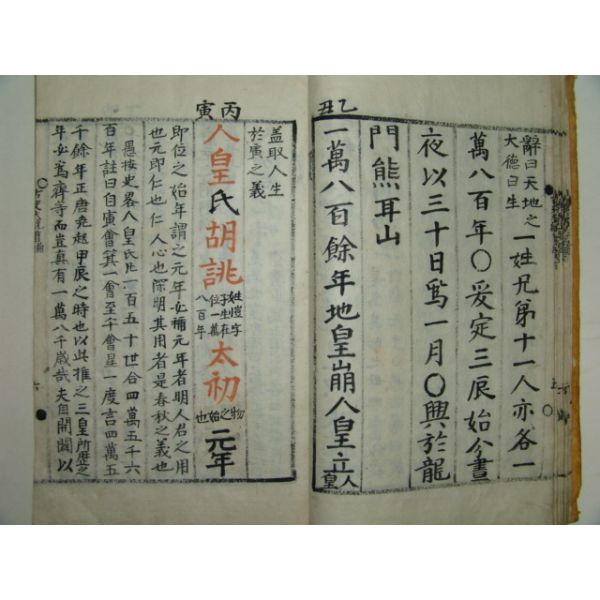 乙丑
辭曰天地之
大德曰生
一姓兄第十一人亦各一
萬八百年〇爰定三辰始分晝
夜以三十日爲一月〇興於龍
門熊耳山
一萬八百餘年地皇崩人皇立
人皇
丙寅
蓋取人生
於寅之義
人皇氏胡誂
姓愷字
子生在
位一萬
八百年
太初
物之始也
元年
即位之始年謂之元年必補元年者明人君之用
也元即仁也仁人心也深明其用者是春秋之義也
愚按史畧人皇氏凡一百五十世合四萬五千六
百年註曰自寅會箕一會至千會星一度言四萬五
千餘年正唐堯起甲辰之時也以此推之三皇所歷之
年必爲齊等而豈真有一萬八千歲哉夫自開闢以